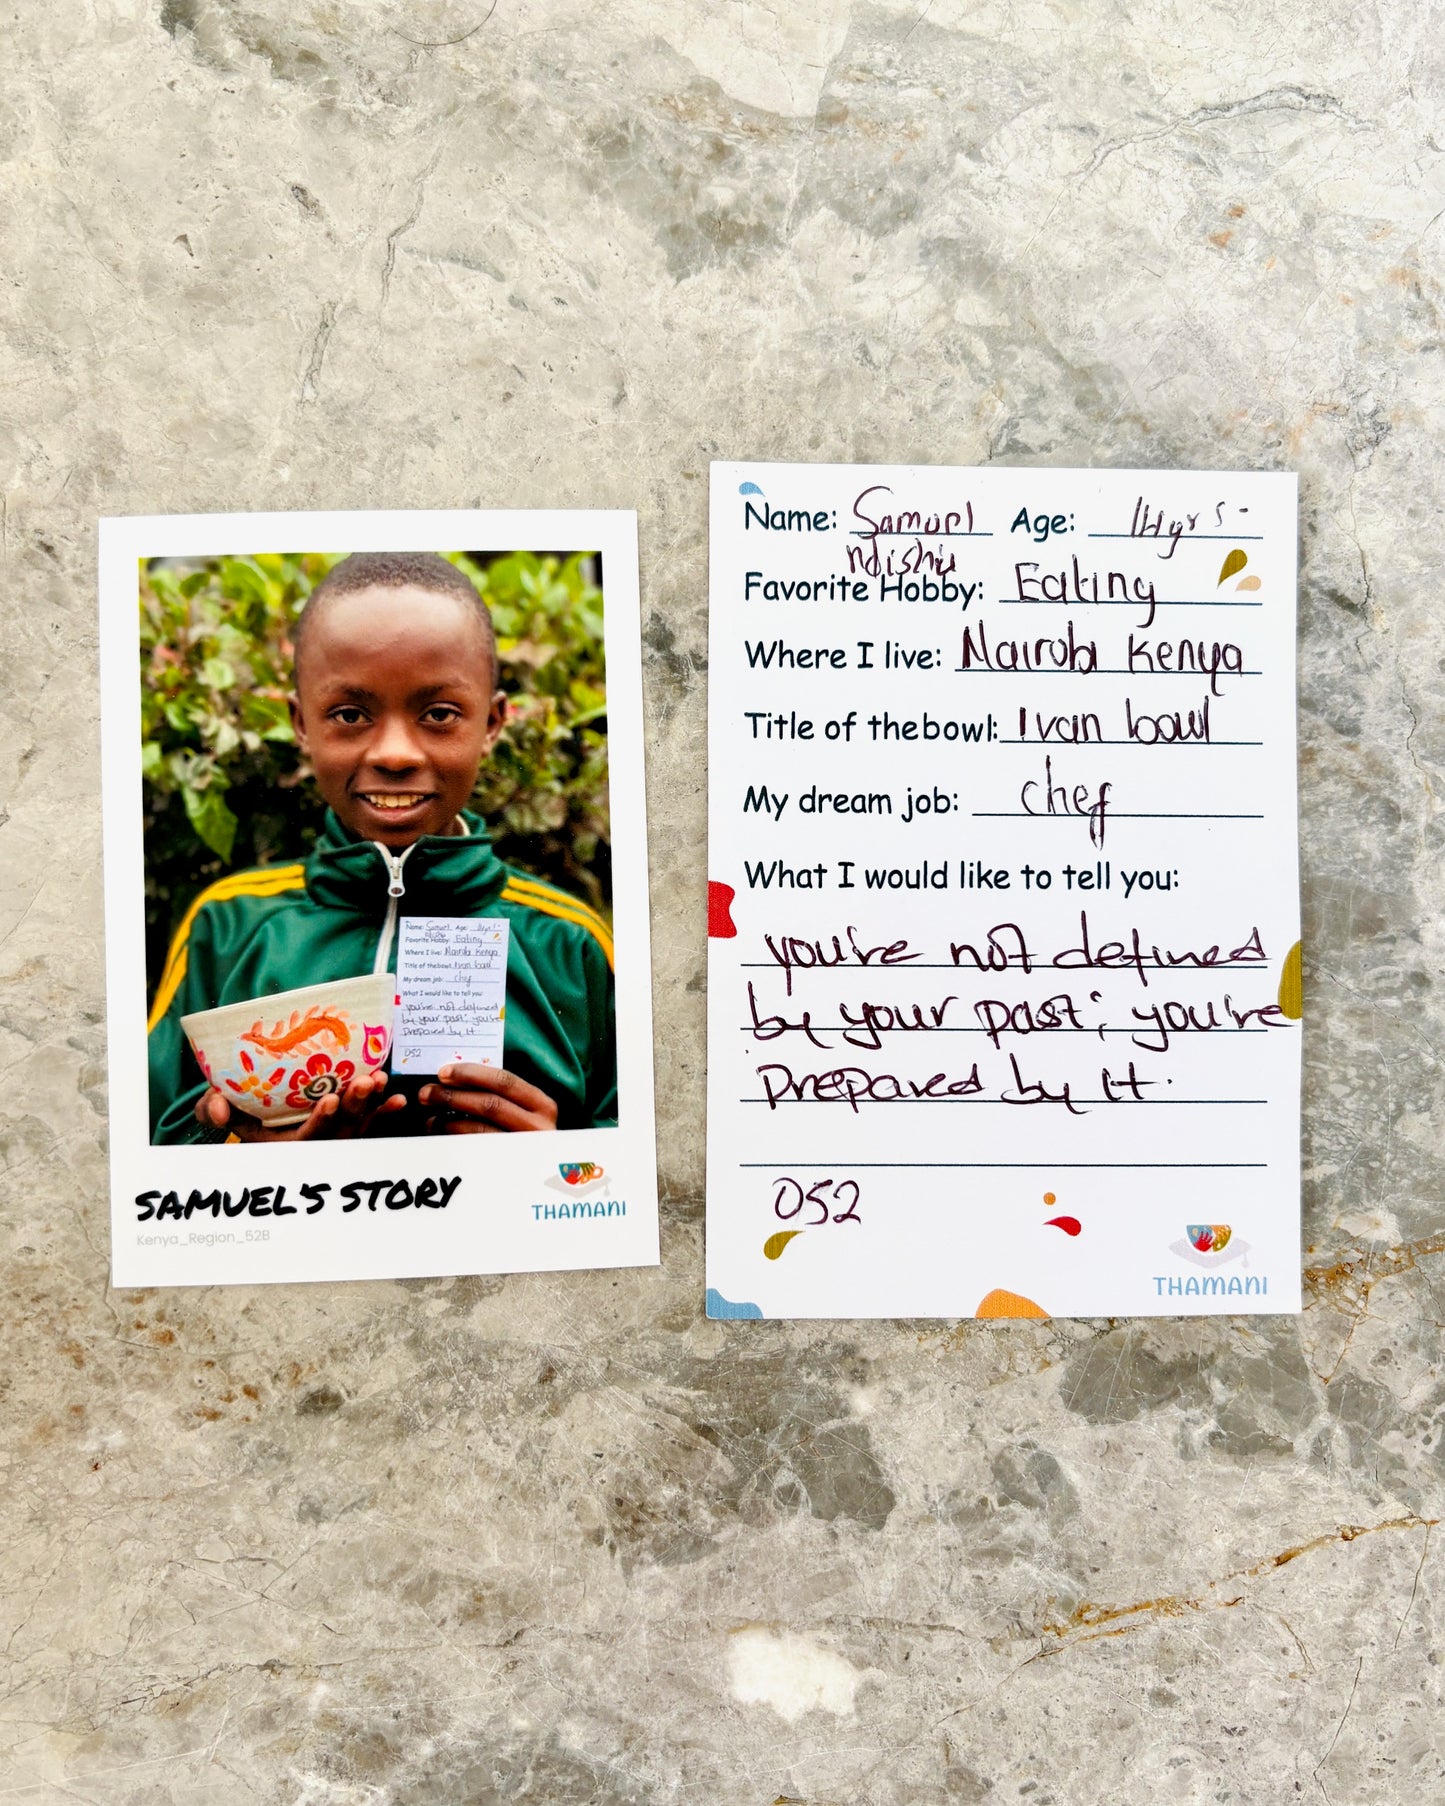 Name: Samuel Age: 14yrs-
Ndishu
Favorite Hobby: Eating
Where I live: Nairobi Kenya
Title of the bowl: Ivan bowl
My dream job: chef
What I would like to tell you:
you're not defined
by your past; you're
prepared by it.
052
SAMUEL'S STORY
Kenya_Region_52B
THAMANI
Name: Samuel Age: 14yrs-
Ndishu
Favorite Hobby: Eating
Where I live: Nairobi Kenya
Title of thebowl: Ivan bowl
My dream job: chef
What I would like to tell you:
you're not defined
by your past; you're
Prepared by it.
052
THAMANI